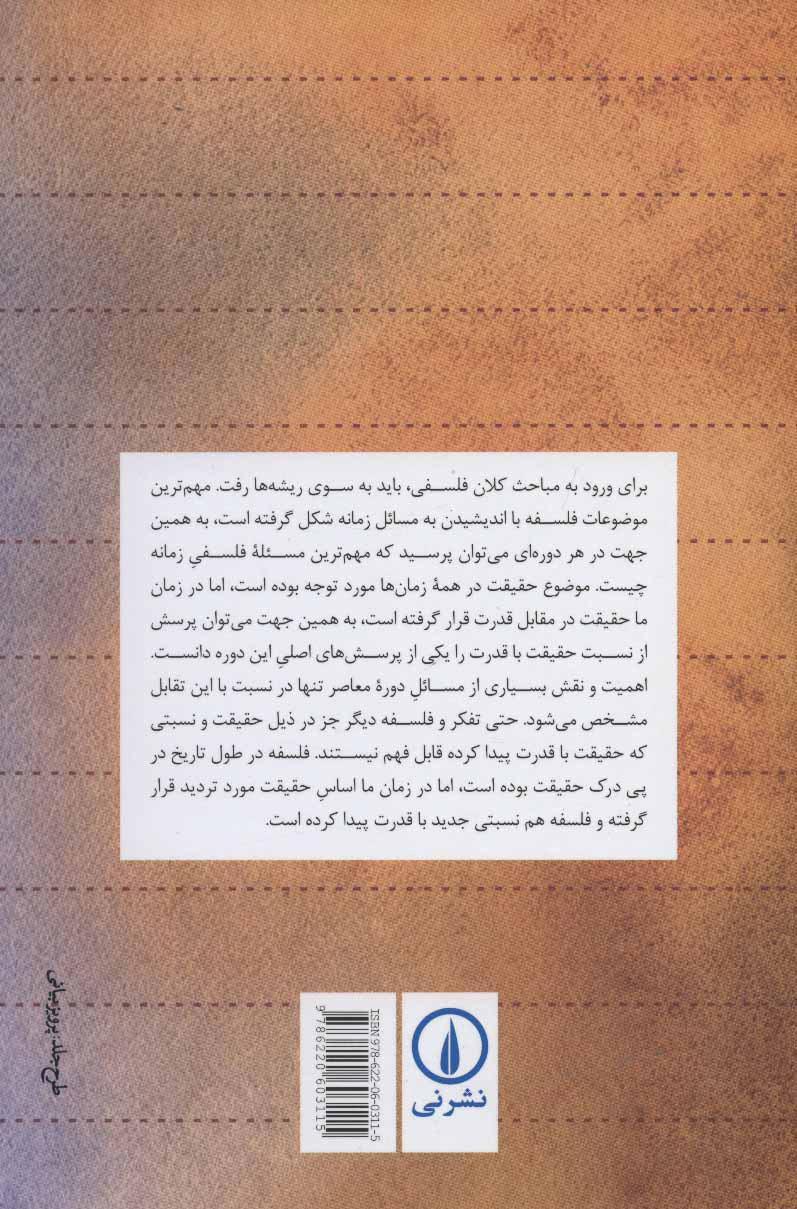 برای ورود به مباحث کلان فلسفی، باید به سوی ریشه‌ها رفت. مهم‌ترین
موضوعات فلسفه با اندیشیدن به مسائل زمانه شکل گرفته است، به همین
جهت در هر دوره‌ای می‌توان پرسید که مهم‌ترین مسئلهٔ فلسفیِ زمانه
چیست. موضوع حقیقت در همهٔ زمان‌ها مورد توجه بوده است، اما در زمان
ما حقیقت در مقابل قدرت قرار گرفته است، به همین جهت می‌توان پرسش
از نسبت حقیقت با قدرت را یکی از پرسش‌های اصلیِ این دوره دانست.
اهمیت و نقش بسیاری از مسائلِ دورهٔ معاصر تنها در نسبت با این تقابل
مشخص می‌شود. حتی تفکر و فلسفه دیگر جز در ذیل حقیقت و نسبتی
که حقیقت با قدرت پیدا کرده قابل فهم نیستند. فلسفه در طول تاریخ در
پی درک حقیقت بوده است، اما در زمان ما اساسِ حقیقت مورد تردید قرار
گرفته و فلسفه هم نسبتی جدید با قدرت پیدا کرده است.
طرح جلد: پرویز بیانی
ISBN 978-622-06-0311-5
9 786220 603115
نشر نی